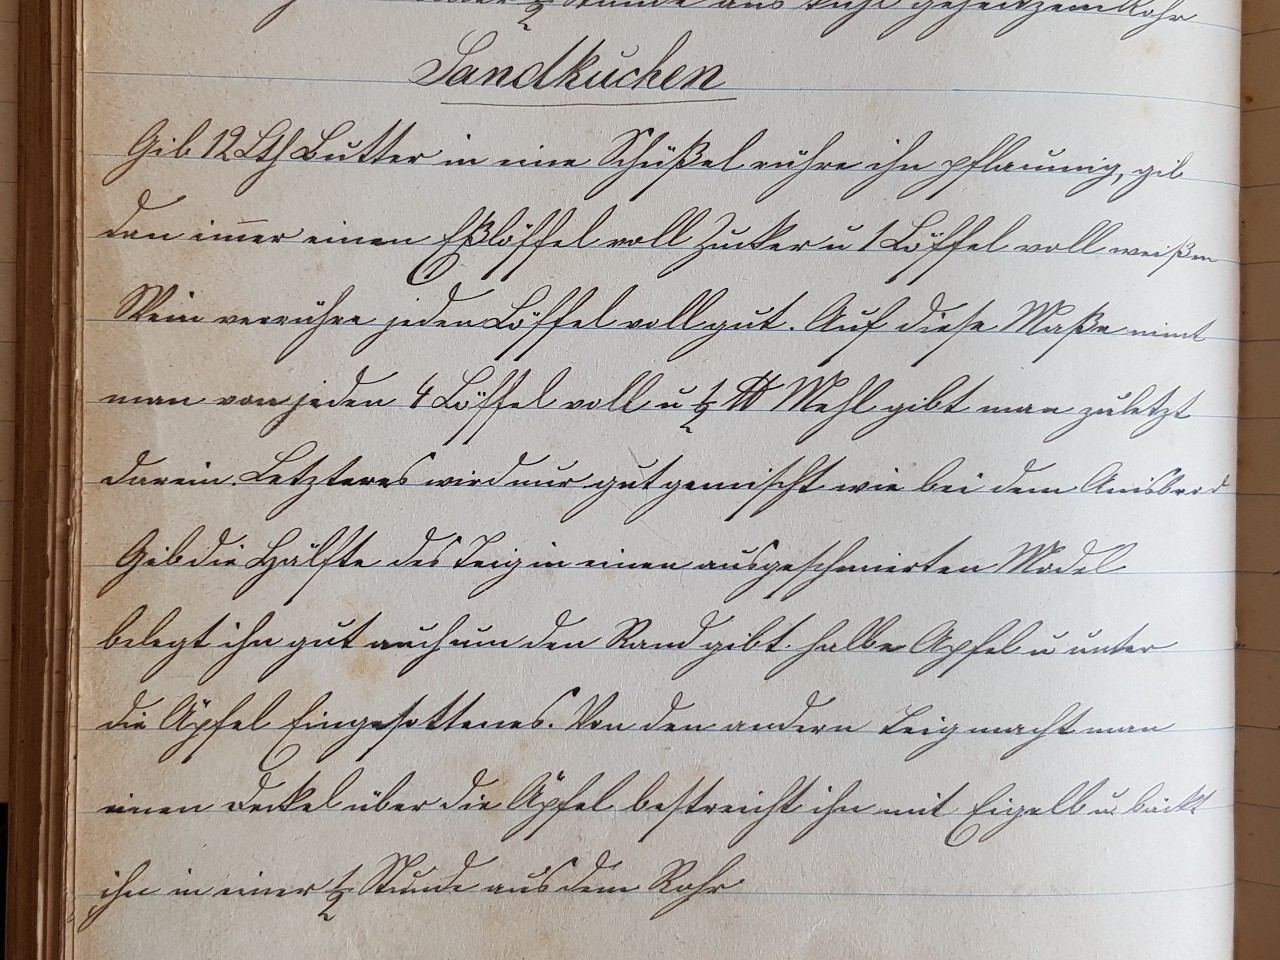 ½ Stunde aus kühl geheitzem Rohr
Sandkuchen
Gib 12 Lth Butter in eine Schüßel rühre ihn pflaumig, gib
dan im̅er einen Eßlöffel voll Zucker u 1 Löffel voll weißen
Wein verrühre jeden Löffel voll gut. Auf diese Maße nimt
man von jeden 4 Löffel voll u ½ ℔ Mehl gibt man zuletzt
darein. Letzteres wird nur gut gemischt wie bei dem Anisbrod
Gib die Hälfte des Teig in einen ausgeschmierten Model
belegt ihn gut auch um den Rand gibt halbe Äpfel u unter
die Äpfel Eingesottenes. Von den andern Teig macht man
einen Deckel über die Äpfel bestreicht ihn mit Eigelb u. bäckt
ihn in einer ½ Stunde aus dem Rohr